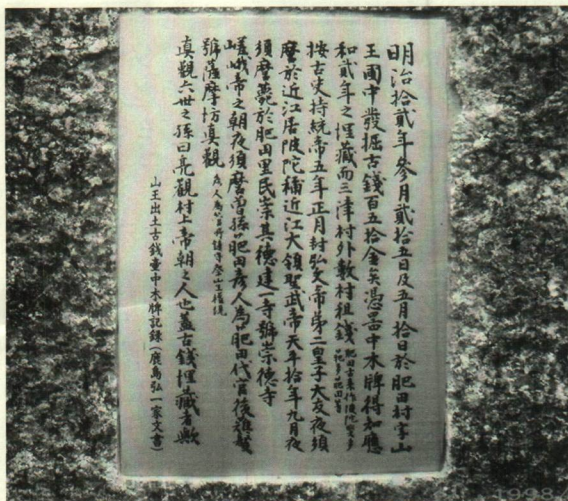 明治拾貳年參月貳拾五日及五月拾日於肥田村字山
王圃中發掘古錢百五拾金矣憑器中木牌得知應
和貳年之埋藏而三津村外數村租錢肥田古来作陂陀
按古史持統帝五年正月封弘文帝第二皇子大友夜須
麿於近江居陂陀補近江大領聖武帝天平拾年九月夜
須麿薨於肥田里民崇其德建一寺號崇德寺
嵯峨帝之朝夜須麿曾孫肥田彦人為肥田代官後雉髮
號薩摩坊真觀
真觀六世之孫曰亮觀村上帝朝之人也蓋古錢埋藏者歟
山王出土古錢壷中木牌記録(鹿島弘一家文書)